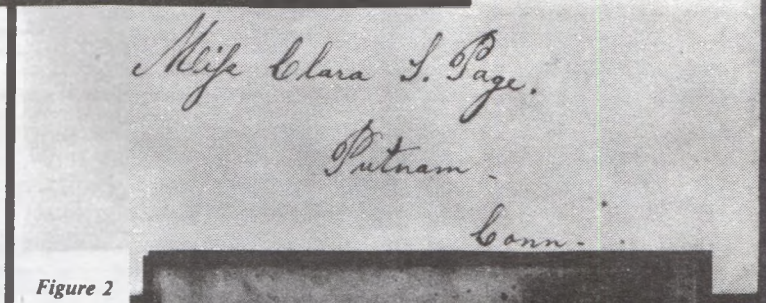 Miss Clara S. Page.
Putnam.
Conn.
Figure 2